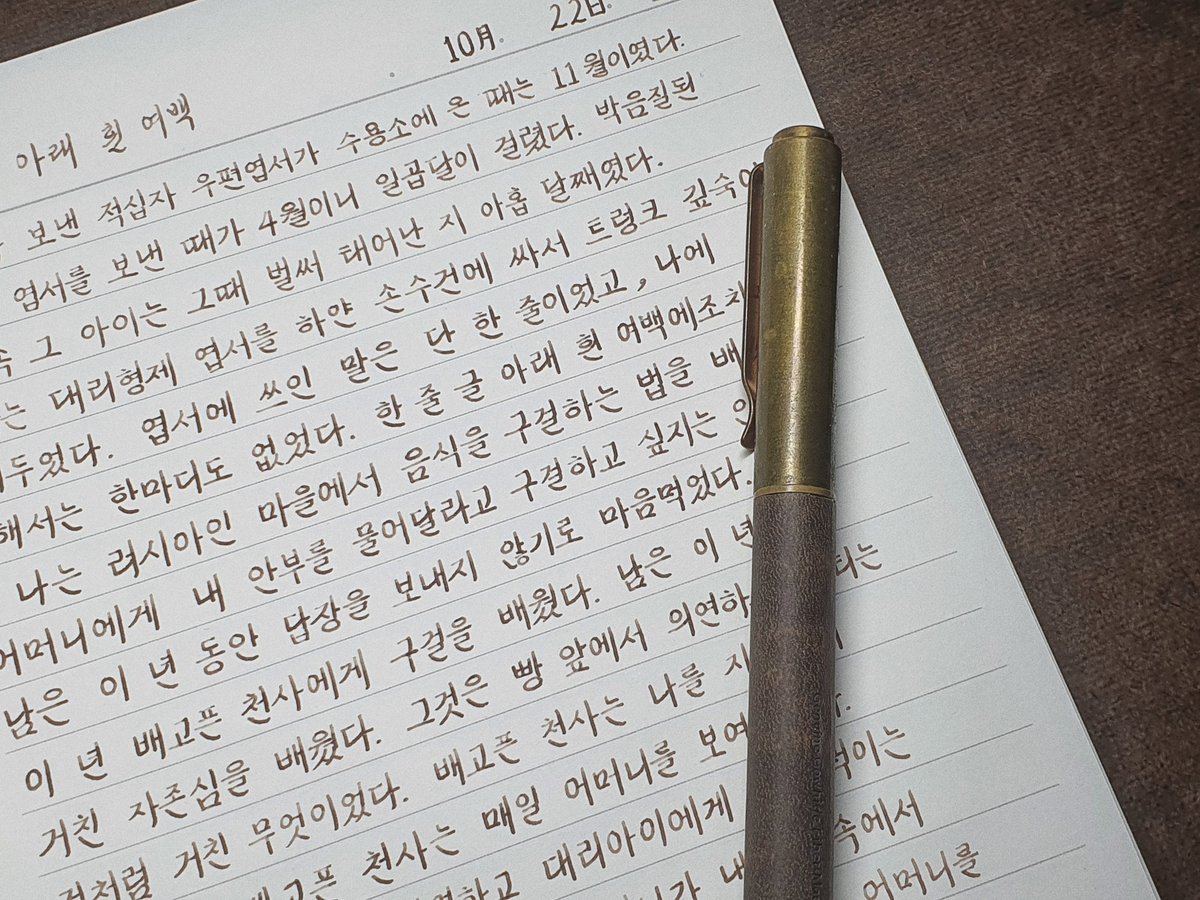 10月. 22日.
아래 흰 여백
보낸 적십자 우편엽서가 수용소에 온 때는 11월이였다.
엽서를 보낸 때가 4월이니 일곱달이 걸렸다. 박음질된
그 아이는 그때 벌써 태어난 지 아홉 달째였다.
대리형제 엽서를 하얀 손수건에 싸서 트렁크 깊숙이
두었다. 엽서에 쓰인 말은 단 한 줄이었고, 나에
해서는 한마디도 없었다. 한 줄 글 아래 흰 여백에조차
나는 러시아인 마을에서 음식을 구걸하는 법을
어머니에게 내 안부를 물어달라고 구걸하고 싶지는
남은 이 년 동안 답장을 보내지 않기로 마음먹었다.
이 년 배고픈 천사에게 구걸을 배웠다. 남은 이 년
거친 자존심을 배웠다. 그것은 빵 앞에서 의연하
것처럼 거친 무엇이었다. 배고픈 천사는 나를
배고픈 천사는 매일 어머니를
대리아이에게 속에서
어머니를